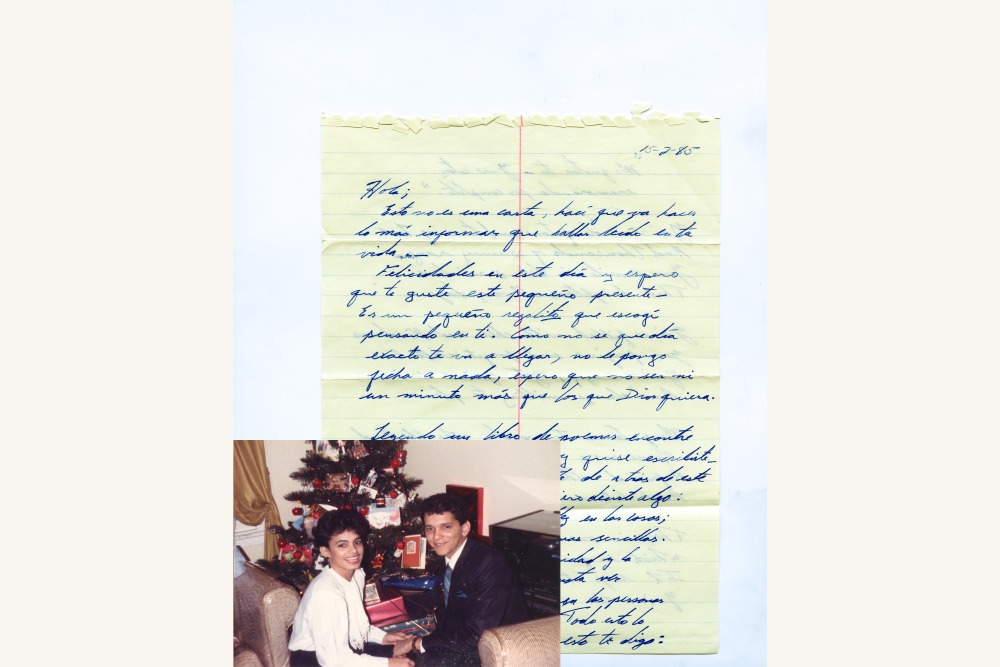 15-2-85
Hola;
Esto no es una carta, haci que va hacer
lo más informar que hallas leido en tu
vida.—
Felicidades en este día y espero
que te guste este pequeño presente—
Es un pequeño regalito que escogí
pensando en ti. Como no se que día
exacto te va a llegar, no le pongo
fecha a nada, espero que no ser ni
un minuto más que los que Dios quiera.
Leyendo un libro de poemas encontre
y quise escribirte—
de a tras de este
decirte algo:
en las cosas;
mas sencillas.
idad y la
sta ver
las personas
Todo esto lo
esto te digo: